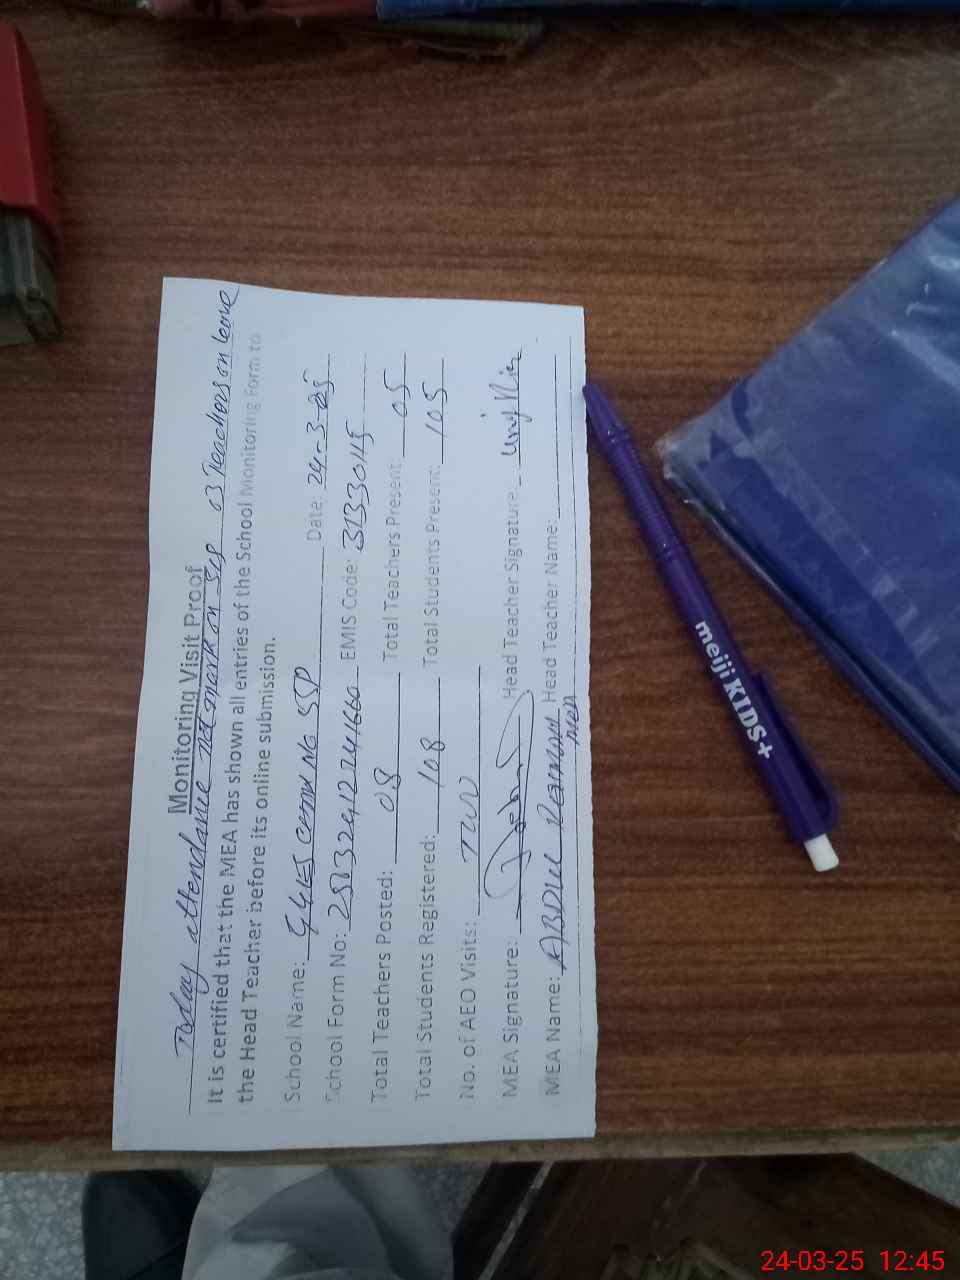 Monitoring Visit Proof
Today attendance not mark on SIS 03 Teachers on leave
It is certified that the MEA has shown all entries of the School Monitoring Form to
the Head Teacher before its online submission.
School Name: No SSP Date: 24-3-25
School Form No: EMIS Code: 31330115
Total Teachers Posted: 08 Total Teachers Present: 05
Total Students Registered: 108 Total Students Present: 105
No. of AEO Visits: TWO
MEA Signature: Head Teacher Signature:
MEA Name: ABDUL Rahman Head Teacher Name:
meiji KIDS+
24-03-25 12:45